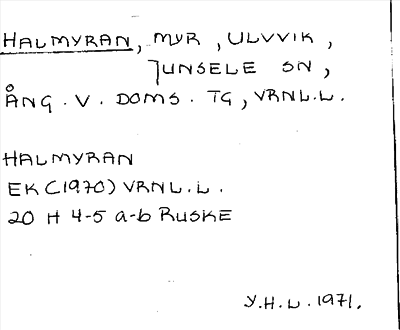 HALMYRAN, MYR, ULVVIK,
JUNSELE SN,
ÅNG. V. DOMS. TG, VRNL.L.
HALMYRAN
EK (1970) VRNL.L.
20 H 4-5 a-b RUSKE
Y.H.L. 1971.